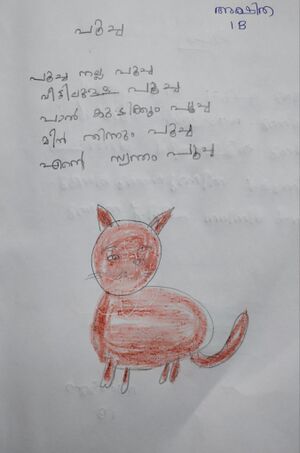 അക്ഷിത
1B
പൂച്ച
പൂച്ച നല്ല പൂച്ച
വീട്ടിലുള്ള പൂച്ച
പാൽ കുടിക്കും പൂച്ച
മീൻ തിന്നും പൂച്ച
എൻ്റെ സ്വന്തം പൂച്ച